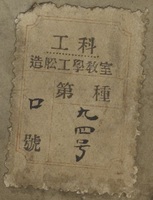 工科
造舩工學教室
第 種
口 九四号
號